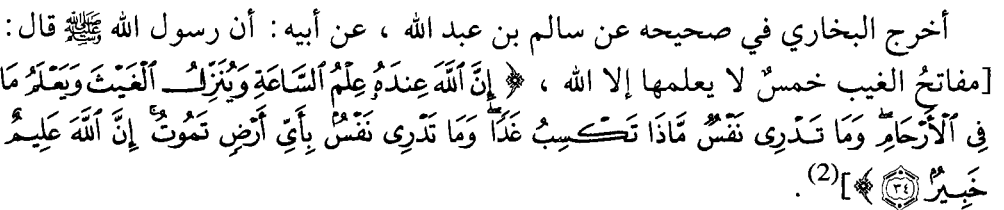 أخرج البخاري في صحيحه عن سالم بن عبد الله ، عن أبيه : أن رسول الله ﷺ قال :
[مفاتحُ الغيب خمسٌ لا يعلمها إلا الله ، ﴿ إِنَّ ٱللَّهَ عِندَهُۥ عِلْمُ ٱلسَّاعَةِ وَيُنَزِّلُ ٱلْغَيْثَ وَيَعْلَمُ مَا
فِى ٱلْأَرْحَامِ ۖ وَمَا تَدْرِى نَفْسٌ مَّاذَا تَكْسِبُ غَدًا ۖ وَمَا تَدْرِى نَفْسٌۢ بِأَىِّ أَرْضٍ تَمُوتُ ۚ إِنَّ ٱللَّهَ عَلِيمٌ
خَبِيرٌۢ ۝٣٤ ﴾](2) .